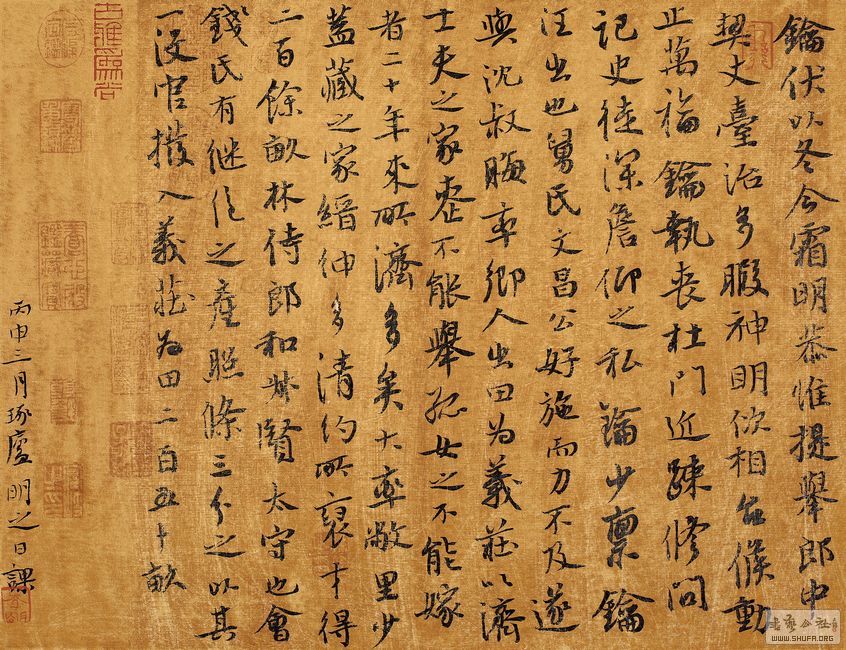 鑰伏以冬令霜明恭惟提舉郎中
契丈臺治多暇神明依相台候動
止萬福鑰執喪杜門近踈修問
記史徒深詹仰之私鑰少稟鑰
汪出也舅氏文昌公好施而力不及遂
與沈叔晦率鄉人出田為義莊以濟
士夫之家喪不能舉孤女之不能嫁
者二十年來所濟多矣大率敝里少
蓋藏之家縉紳多清約所裒才得
二百餘畝林侍郎和叔賢太守也會
錢氏有继絕之產照條三分之以其
一没官撥入義莊為田二百五十畝
丙申三月琢廬明之日課
書藝公社
WWW.SHUFA.ORG